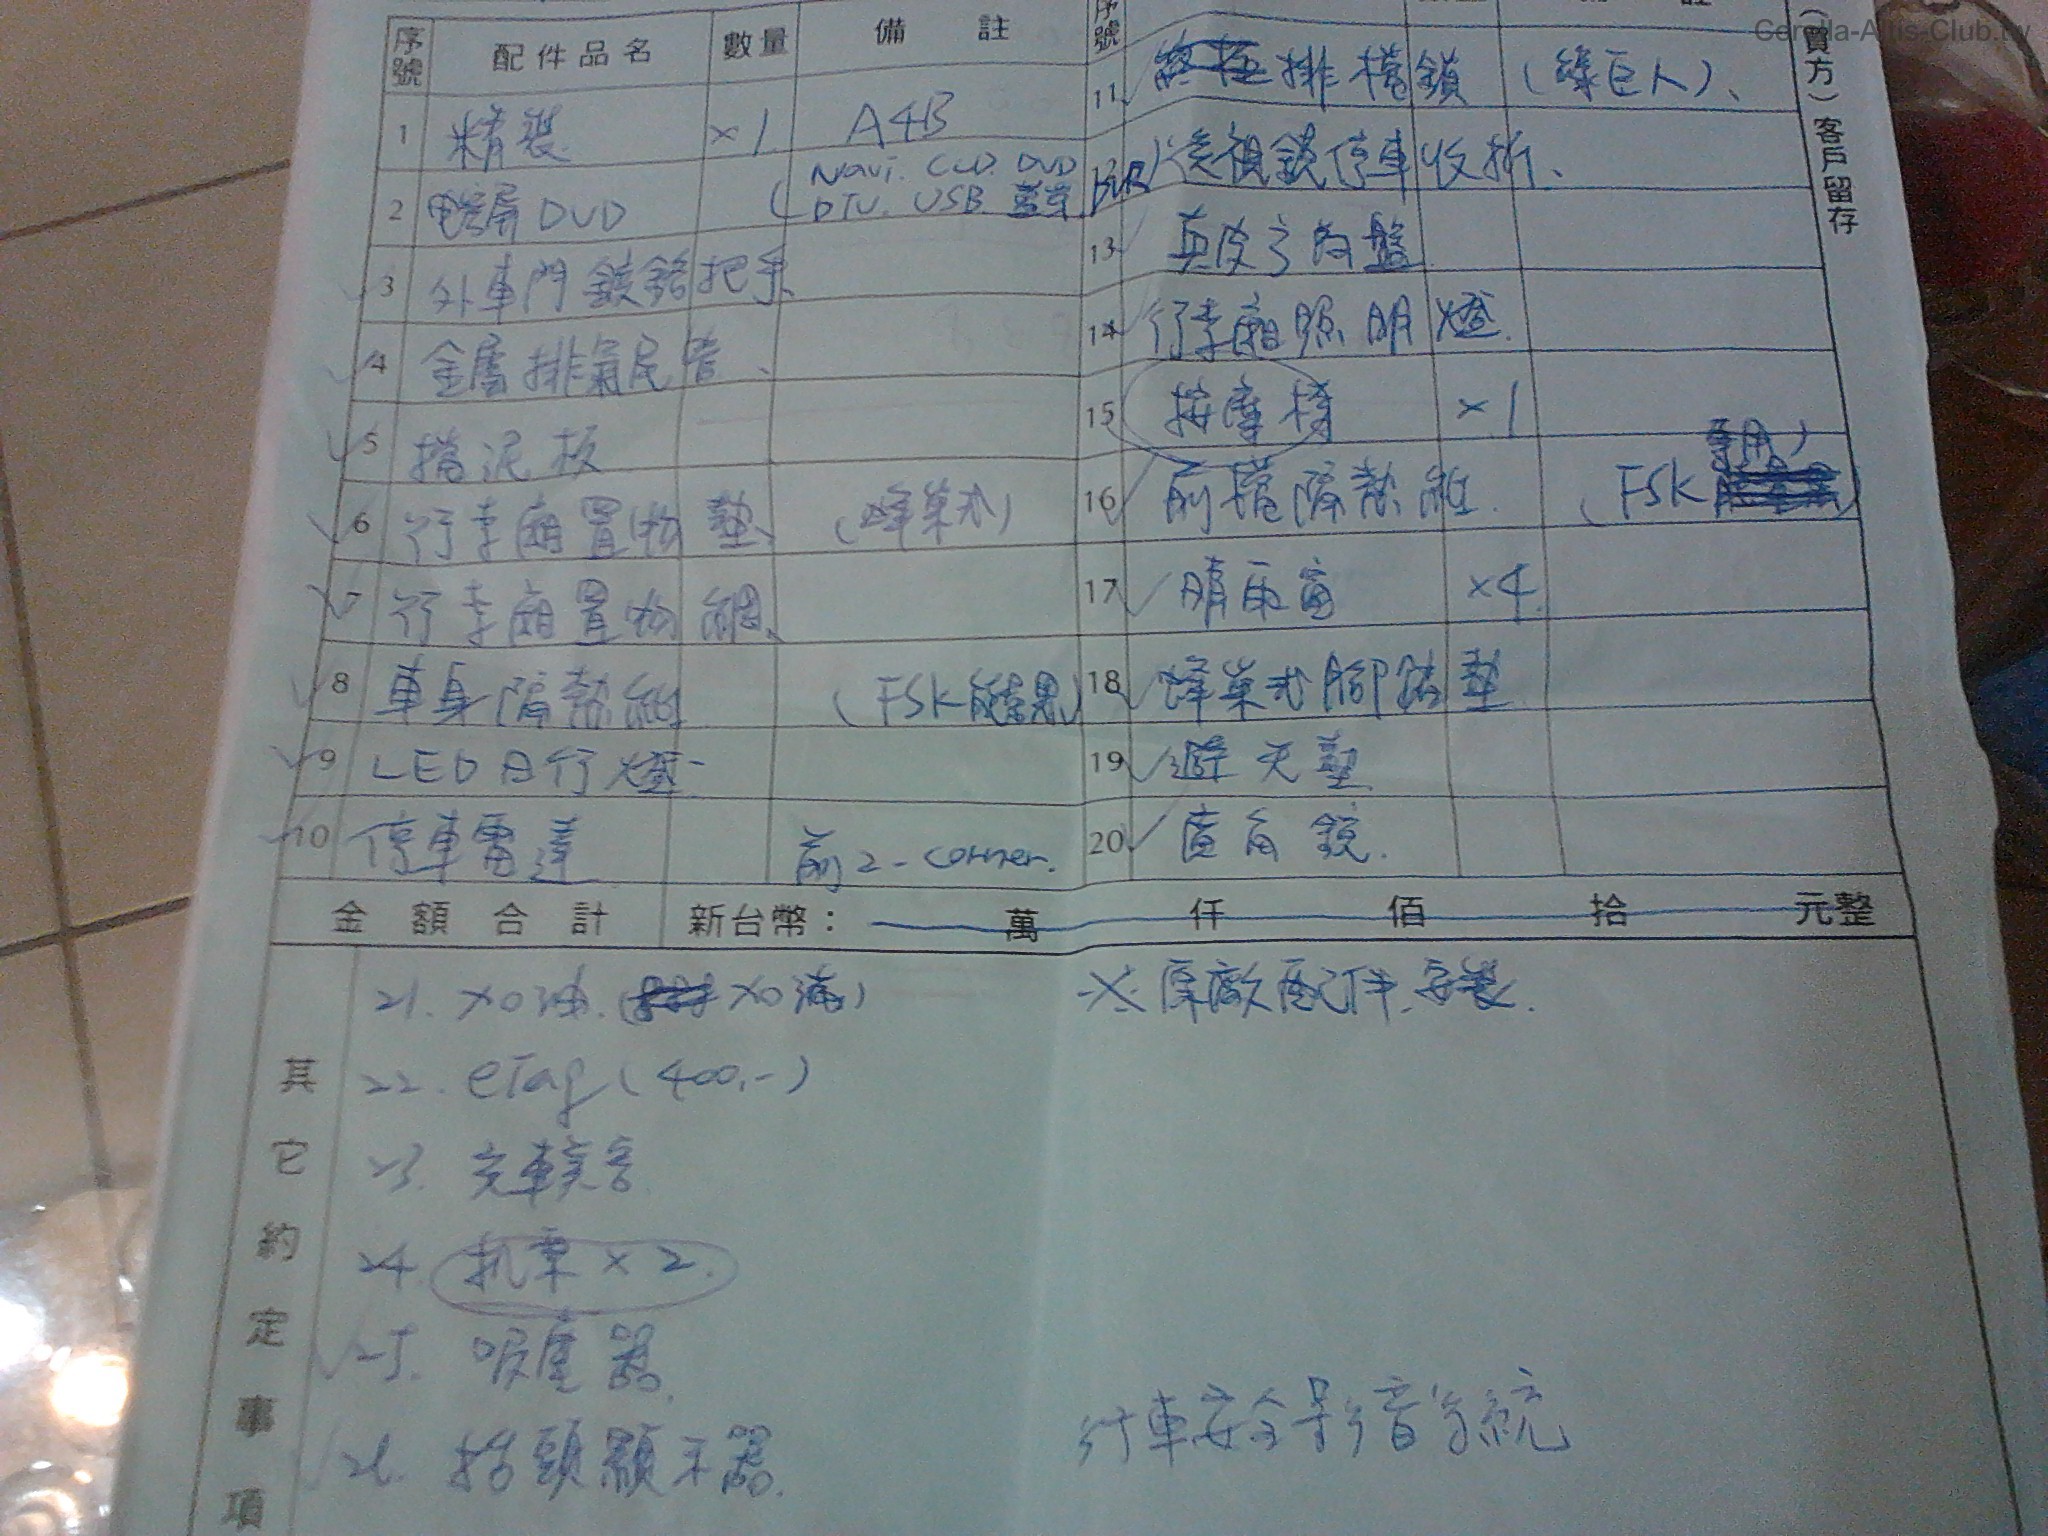 Corolla-Altis-Club.tw
序號 配件品名 數量 備註
1 精裝 ×1 A4B
2 觸控屏DVD (Navi. CD. DVD DTV. USB 藍芽 DVR)
3 外車門鍍鉻把手、
4 金屬排氣尾管、
5 擋泥板
6 行李廂置物墊、 (蜂巢式)
7 行李廂置物網、
8 車身隔熱紙 (FSK
9 LED日行燈
10 停車雷達 前2-corner.
序號
11 排檔鎖 (綠巨人)、
後視鏡停車收折、
13 真皮方向盤
14 行李廂照明燈.
15 按摩椅 ×1
16 前擋隔熱紙. (FSK 專用)
17 晴雨窗 ×4.
18 蜂巢式腳踏墊
19 避光墊
20 廣角鏡.
(買方)客戶留存
金額合計 新台幣: 萬 仟 佰 拾 元整
其它約定事項
21. 加油. (加滿)
22. eTag (400.-)
23. 交車
24. 机票×2.
25. 吸塵器.
26. 抬頭顯示器.
※原廠配件.安裝.
行車安全影音系統